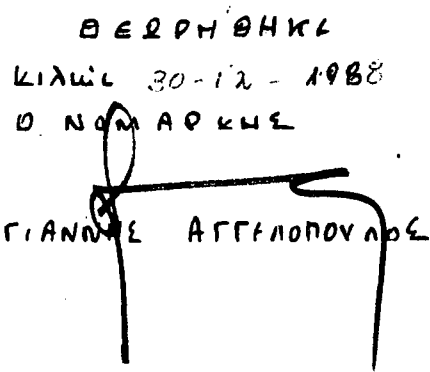 ΘΕΩΡΗΘΗΚΕ
Κιλκίς 30-12-1988
Ο ΝΟΜΑΡΧΗΣ
ΓΙΑΝΝΗΣ ΑΓΓΕΛΟΠΟΥΛΟΣ